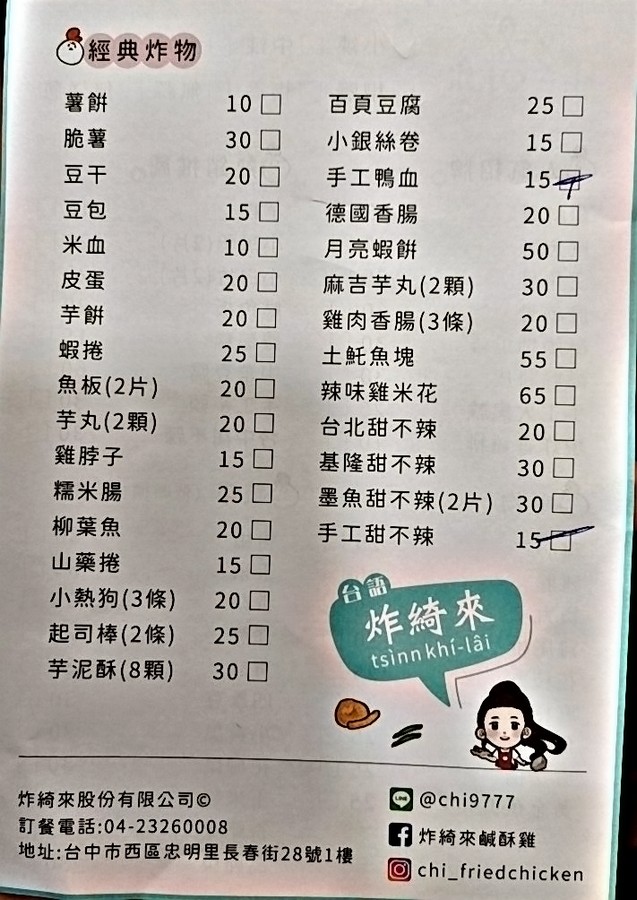 經典炸物
薯餅 10
脆薯 30
豆干 20
豆包 15
米血 10
皮蛋 20
芋餅 20
蝦捲 25
魚板(2片) 20
芋丸(2顆) 20
雞脖子 15
糯米腸 25
柳葉魚 20
山藥捲 15
小熱狗(3條) 20
起司棒(2條) 25
芋泥酥(8顆) 30
百頁豆腐 25
小銀絲卷 15
手工鴨血 15
德國香腸 20
月亮蝦餅 50
麻吉芋丸(2顆) 30
雞肉香腸(3條) 20
土魠魚塊 55
辣味雞米花 65
台北甜不辣 20
基隆甜不辣 30
墨魚甜不辣(2片) 30
手工甜不辣 15
台語
炸綺來
tsìnn khí-lâi
炸綺來股份有限公司©
訂餐電話:04-23260008
地址:台中市西區忠明里長春街28號1樓
LINE @chi9777
炸綺來鹹酥雞
chi_friedchicken